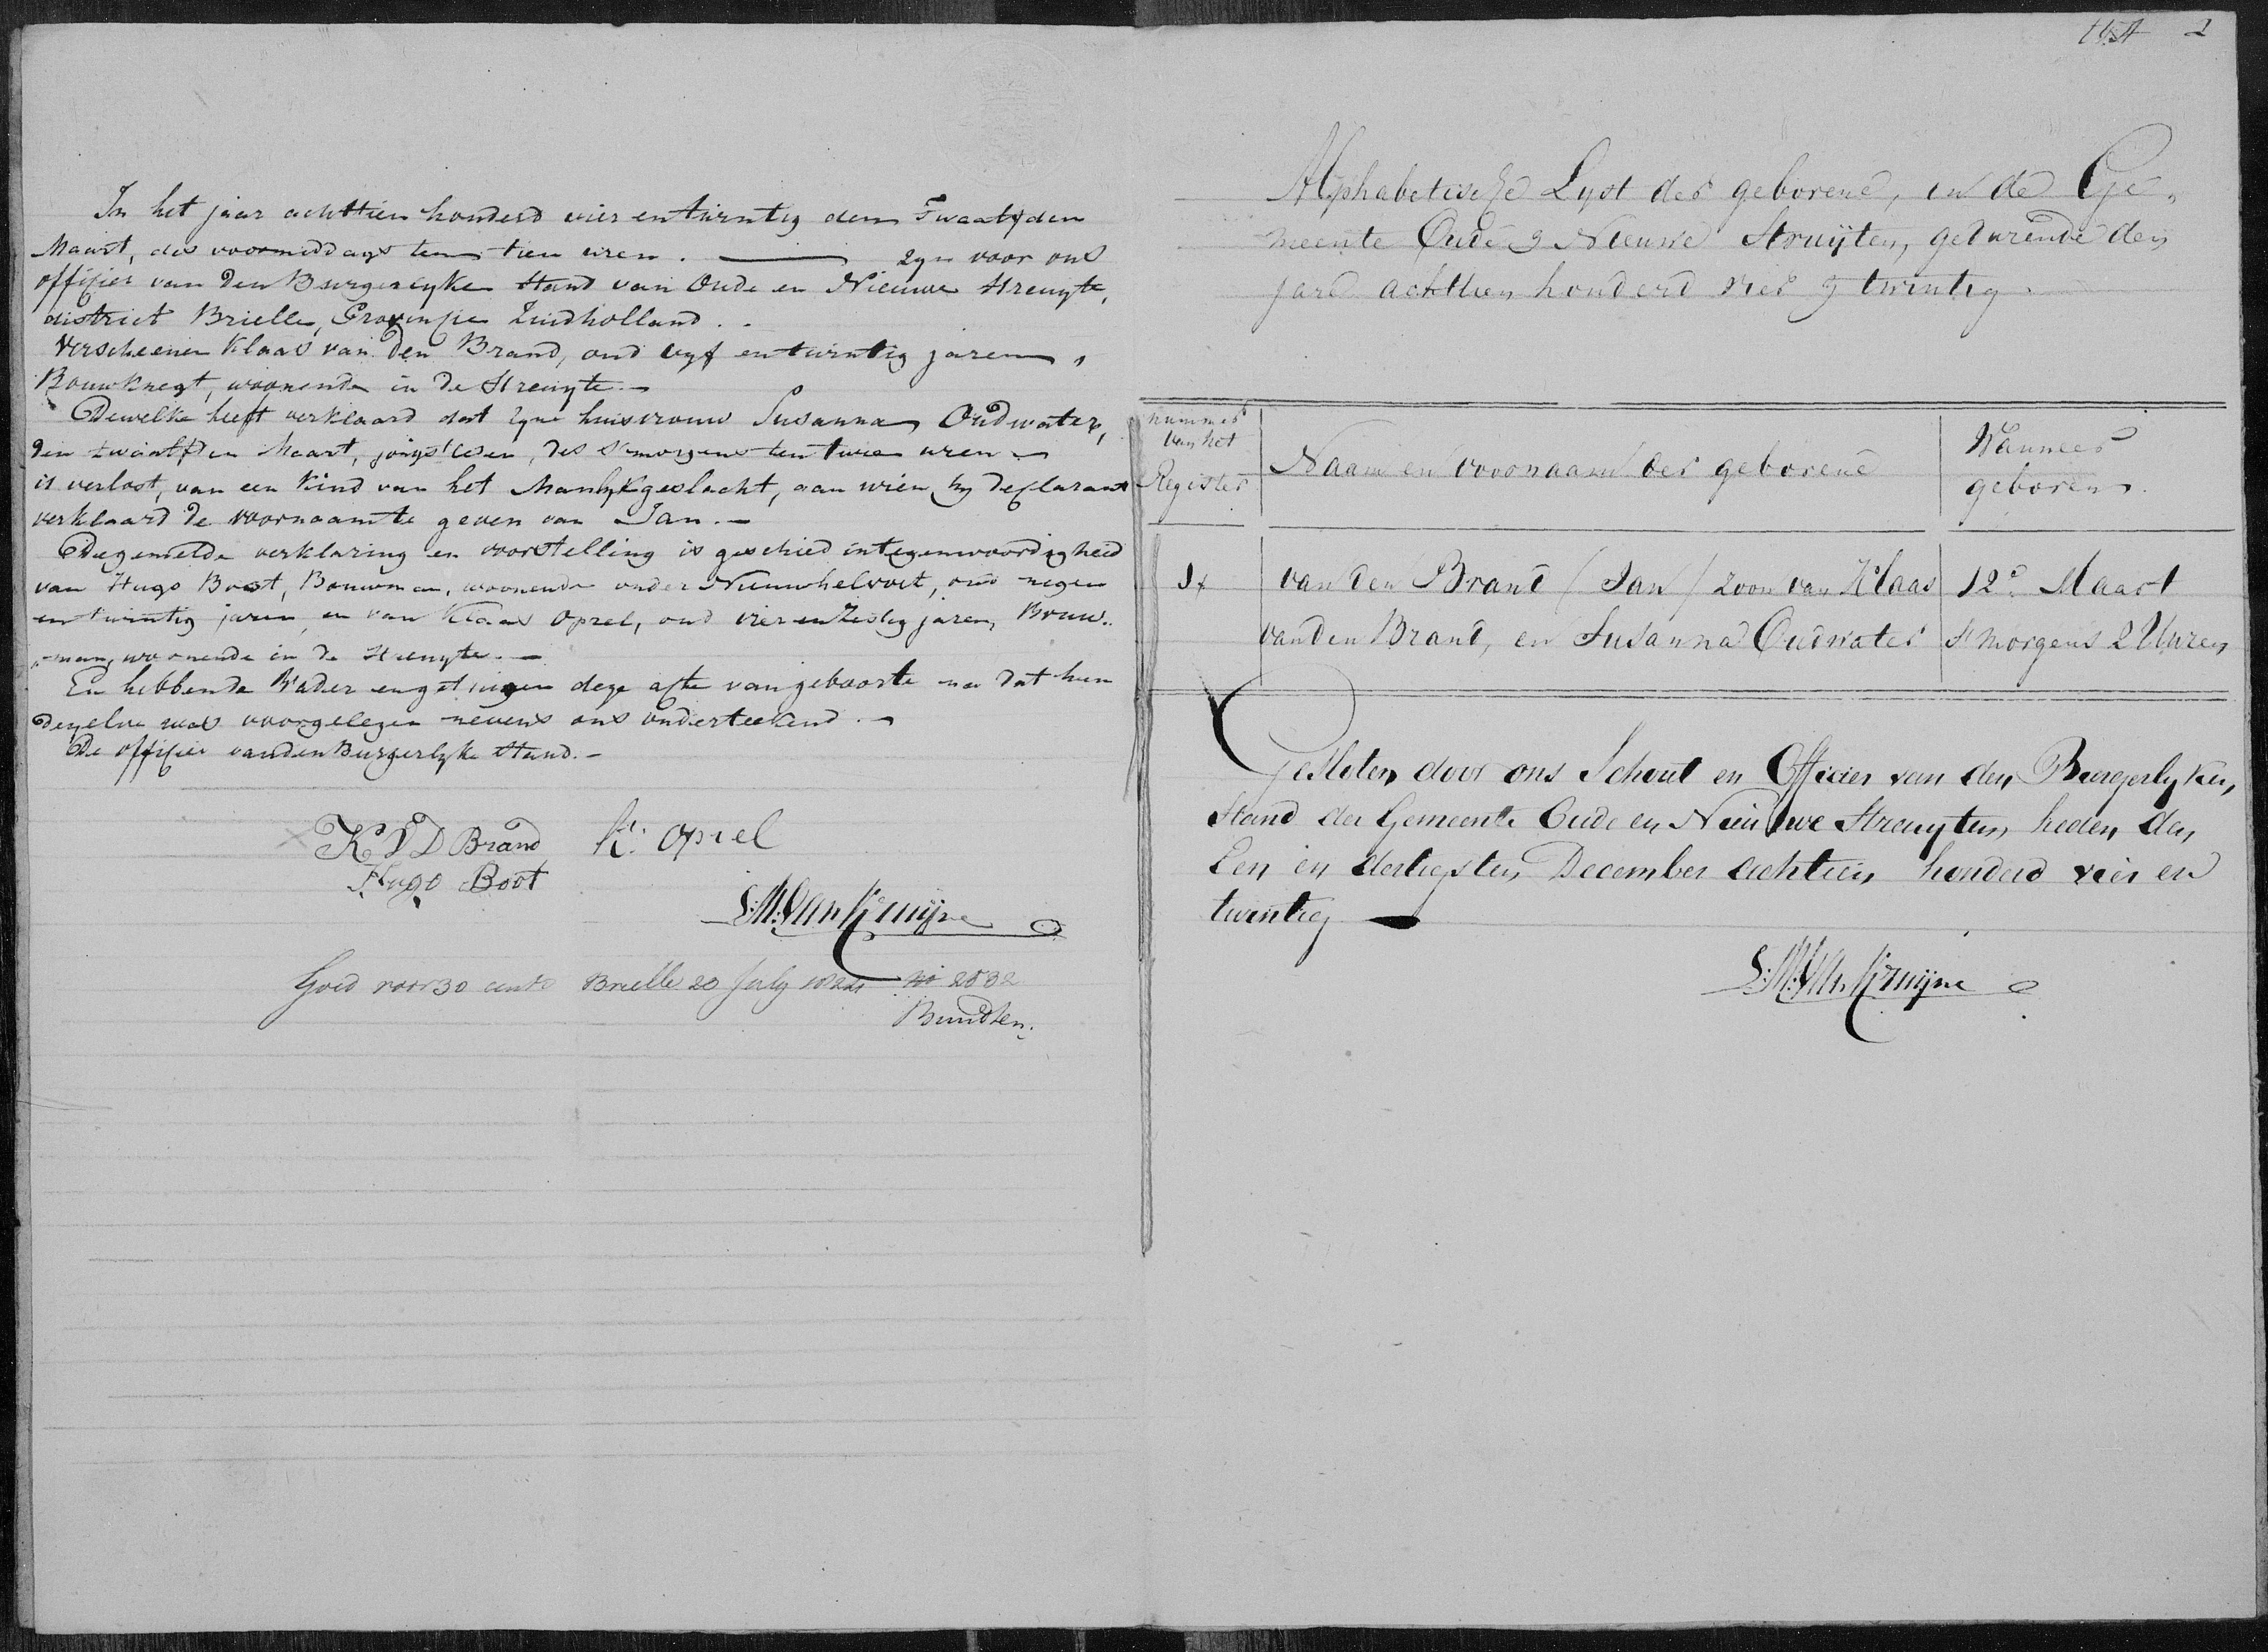 In het jaar achttien honderd vier en twintig den Twaalfden
Maart, des voormiddags ten tien uren. zyn voor ons
offisier van den Burgerlyke Stand van Oude en Nieuwe Struyte,
district Brielle, Provinsie Zuidholland.
Verscheenen Klaas van den Brand, oud vyf en twintig jaren,
Bouwknegt, woonende in de Struyte.
Dewelke heeft verklaard dat zyne huisvrouw Susanna Oudwater,
den twaalfden Maart, jongstleden, des 's morgens ten twee uren
is verlost, van een Kind van het Manlykgeslacht, aan wien hy declarant
verklaard de voornaam te geven van Jan.
Diegemelde verklaring en voorstelling is geschied in tegenwoordigheid
van Hugo Boot, Bouwman, woonende onder Nieuwhelvoet, oud negen
en twintig jaren, en van Klaas Oprel, oud vier en Zestig jaren, Bouw-
-man, woonende in de Struyte.
En hebbende Vader en getuigen deze acte van geboorte na dat hun
dezelve was voorgelezen nevens ons onderteekend.
De offisier van den Burgerlyke Stand.
K V D Brand Kl: Oprel
Hugo Boot
Goed voor 30 cents Brielle 20 July 1824 No 2832
2
Alphabetische Lyst der geborene, in de Ge-
meente Oude & Nieuwe Struijten, gedurende den
jare achttien honderd vier & twintig.
nummer van het Register
Naam en voornaam der geborene
Wanneer geboren.
1
van den Brand (Jan) zoon van Klaas 12e Maart
van den Brand, en Susanna Oudwater 's morgens 2 Uuren
Gesloten door ons Schout en Officier van den Burgerlyken
Stand der Gemeente Oude en Nieuwe Struyten, heden den
Een en dertigsten December achttien honderd vier en
twintig